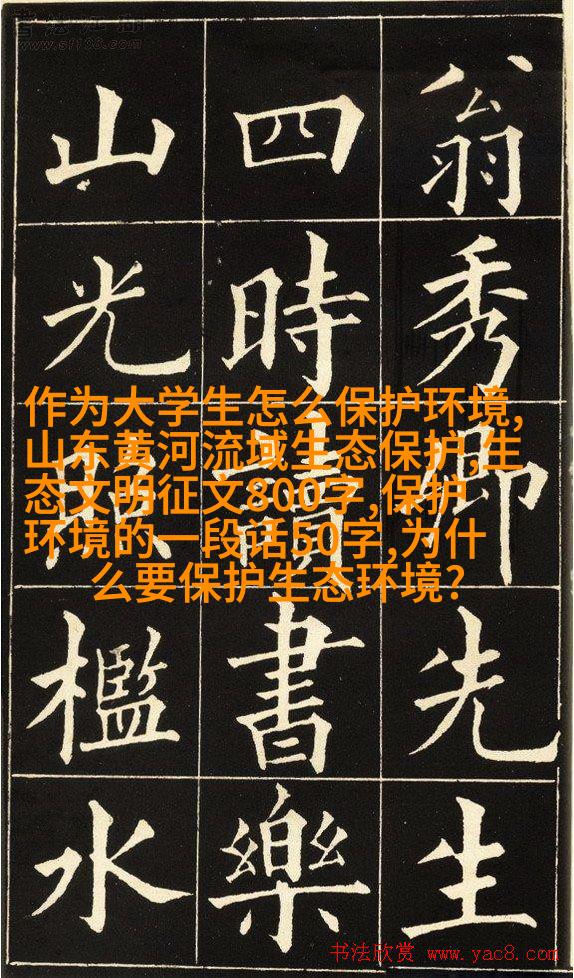 翁秀卿先生
四時讀書樂
山光照檻水
作为大学生怎么保护环境,
山东黄河流域生态保护,生
态文明征文800字,保护
环境的一段话50字,为什
么要保护生态环境?
书法欣赏 www.yac8.com